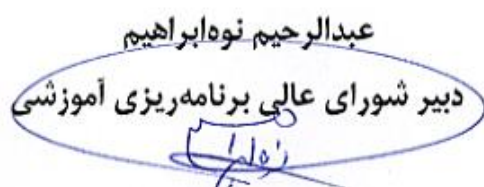 عبدالرحیم نوه‌ابراهیم
دبیر شورای عالی برنامه‌ریزی آموزشی